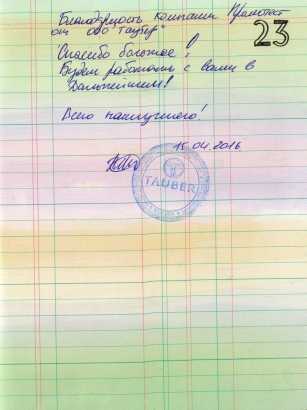 Благодарность компании
от ООО "Таубер"
23
Спасибо большое!
Будем работать с вами в
дальнейшем!
Всего наилучшего!
15.04.2016
TAUBER